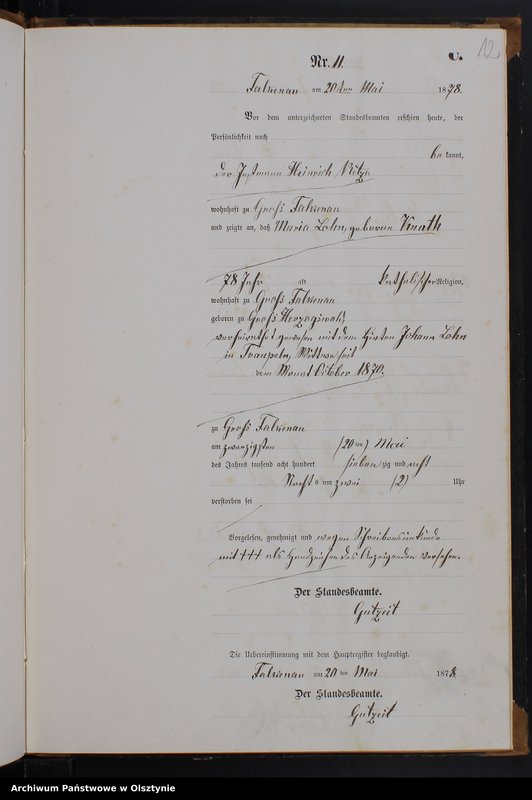 12
Nr. 11.
C.
Falkenau am 20ten Mai 1878.
Vor dem unterzeichneten Standesbeamten erschien heute, der
Persönlichkeit nach
bekannt,
der Instmann Heinrich
wohnhaft zu Groß Falkenau
und zeigte an, daß Maria Lohn, geborene
78 Jahr alt katholischer Religion,
wohnhaft zu Groß Falkenau
geboren zu Groß Herzogswald,
verheirathet gewesen mit dem Hirten Johann Lohn
in Traupeln, Wittwe seit
dem Monat October 1870.
zu Groß Falkenau
am zwanzigsten (20ten) Mai
des Jahres tausend acht hundert siebenzig und acht
Nachts um zwei (2) Uhr
verstorben sei
Vorgelesen, genehmigt und wegen Schreibensunkunde
mit +++ als Handzeichen des Anzeigenden versehen.
Der Standesbeamte.
Gutzeit
Die Uebereinstimmung mit dem Hauptregister beglaubigt.
Falkenau am 20ten Mai 1878
Der Standesbeamte.
Gutzeit
Archiwum Państwowe w Olsztynie